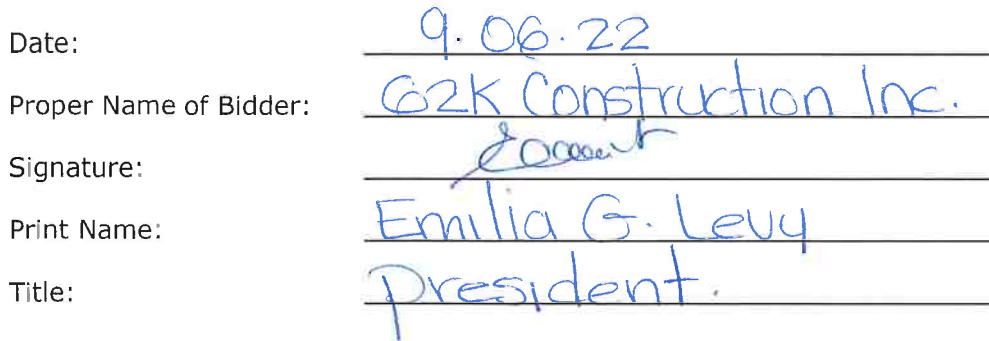 Date: 9.06.22
Proper Name of Bidder: G2K Construction Inc.
Signature:
Print Name: Emilia G. Levy
Title: president.